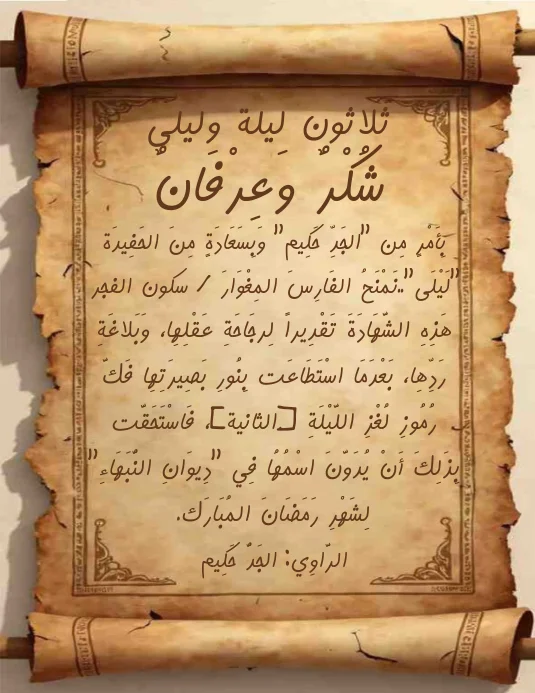 ثلاثون ليلة وليلي
شُكْرٌ وَعِرْفَانٌ
بَأَمْرٍ مِن "الجَدِّ حَكِيم" وَبِسَعَادَةٍ مِنَ الحَفِيدَة
"لَيْلَى"..نَمْنَحُ الفَارِسَ المِغْوَارَ / سكون الفجر
هَذِهِ الشَّهَادَةَ تَقْدِيراً لِرجَاحَةِ عَقْلِهَا، وَبَلاغَةِ
رَدِّهَا، بَعْدَمَا اسْتَطَاعَت بِنُورِ بَصِيرَتِهَا فَكّ
رُمُوزِ لُغْزِ اللّيْلَةِ [الثانية]، فَاسْتَحَقّت
بِذَلِكَ أَنْ يُدَوّنَ اسْمُهُا فِي "دِيوَانِ النُّبَهَاءِ"
لِشَهْرِ رَمَضَانَ المُبَارَك.
الرّاوِي: الجَدّ حَكِيم